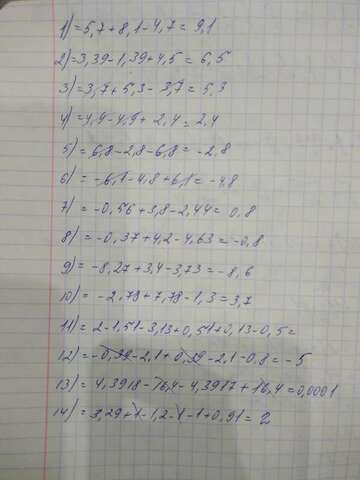 1) = 5,7 + 8,1 - 4,7 = 9,1
2) = 3,39 - 1,39 + 4,5 = 6,5
3) = 3,7 + 5,3 - 3,7 = 5,3
4) = 4,9 - 4,9 + 2,4 = 2,4
5) = 6,8 - 2,8 - 6,8 = -2,8
6) = -6,1 - 4,8 + 6,1 = -4,8
7) = -0,56 + 3,8 - 2,44 = 0,8
8) = -0,37 + 4,2 - 4,63 = -0,8
9) = -8,27 + 3,4 - 3,73 = -8,6
10) = -2,78 + 7,78 - 1,3 = 3,7
11) = 2 - 1,51 - 3,13 + 0,51 + 0,13 - 0,5 =
12) = -0,39 - 2,1 + 0,39 - 2,1 - 0,8 = -5
13) = 4,3918 - 16,4 - 4,3917 + 16,4 = 0,0001
14) = 3,29 + 1 - 1,2 - 1 - 1 + 0,91 = 2